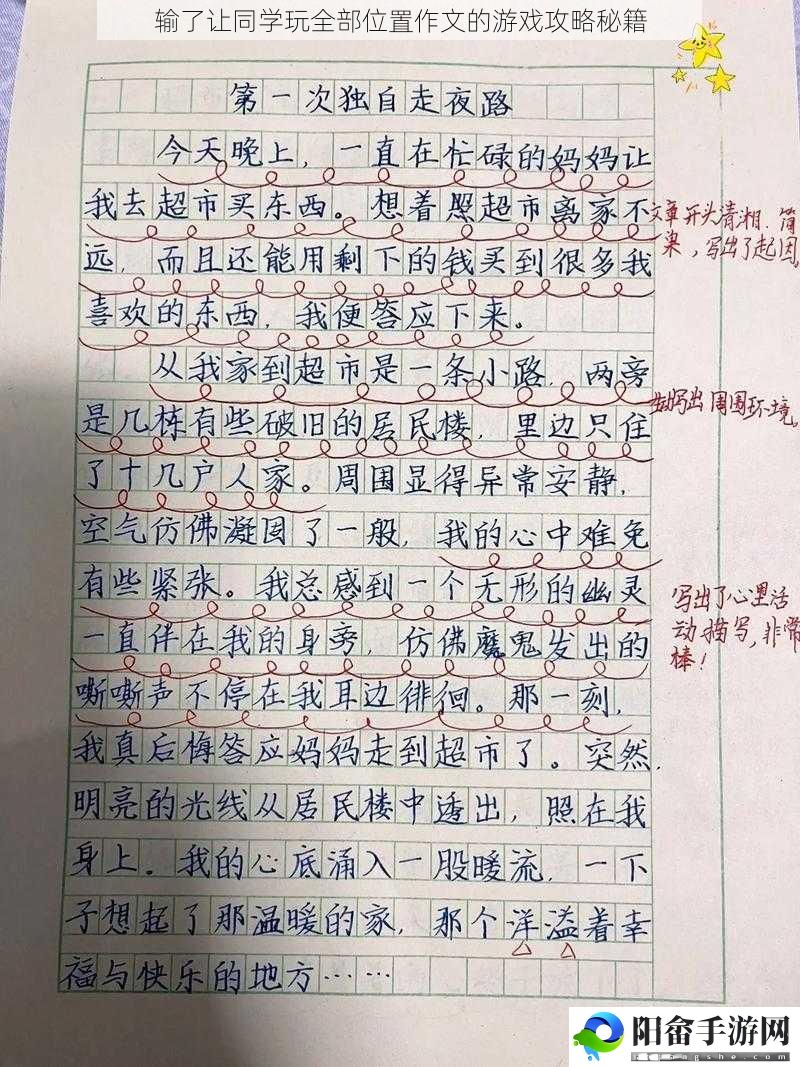 输了让同学玩全部位置作文的游戏攻略秘籍
第一次独自走夜路
今天晚上，一直在忙碌的妈妈让
我去超市买东西。想着照超市离家不
文章开头清湘.简
染，写出了起因。
远，而且还能用剩下的钱买到很多我
喜欢的东西，我便答应下来。
从我家到超市是一条小路，两旁
生动写出周围环境。
是几栋有些破旧的居民楼，里边只住
了十几户人家。周围显得异常安静，
空气仿佛凝固了一般，我的心中难免
有些紧张。我总感到一个无形的幽灵
写出了心里活
动描写，非常
棒！
一直伴在我的身旁，仿佛魔鬼发出的
嘶嘶声不停在我耳边徘徊。那一刻，
我真后悔答应妈妈走到超市了。突然，
明亮的光线从居民楼中透出，照在我
身上。我的心底涌入一股暖流，一下
子想起了那温暖的家，那个洋溢着幸
福与快乐的地方……
阳畲手游网